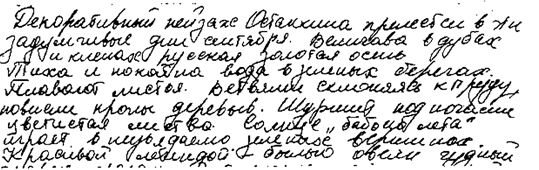 Декоративный пейзаж Останкина прелестен в эти
задумчивые дни сентября. Величава в дубах
и кленах русская золотая осень
Тиха и покатна вода в зеленых берегах.
Плавают листья. Ветвями склоняясь к пруду,
повисли кроны деревьев. Шуршит под ногами
цветистая листва. Солнце „бабьего лета"
играет в
Красивой легендой - былью овеян чудный